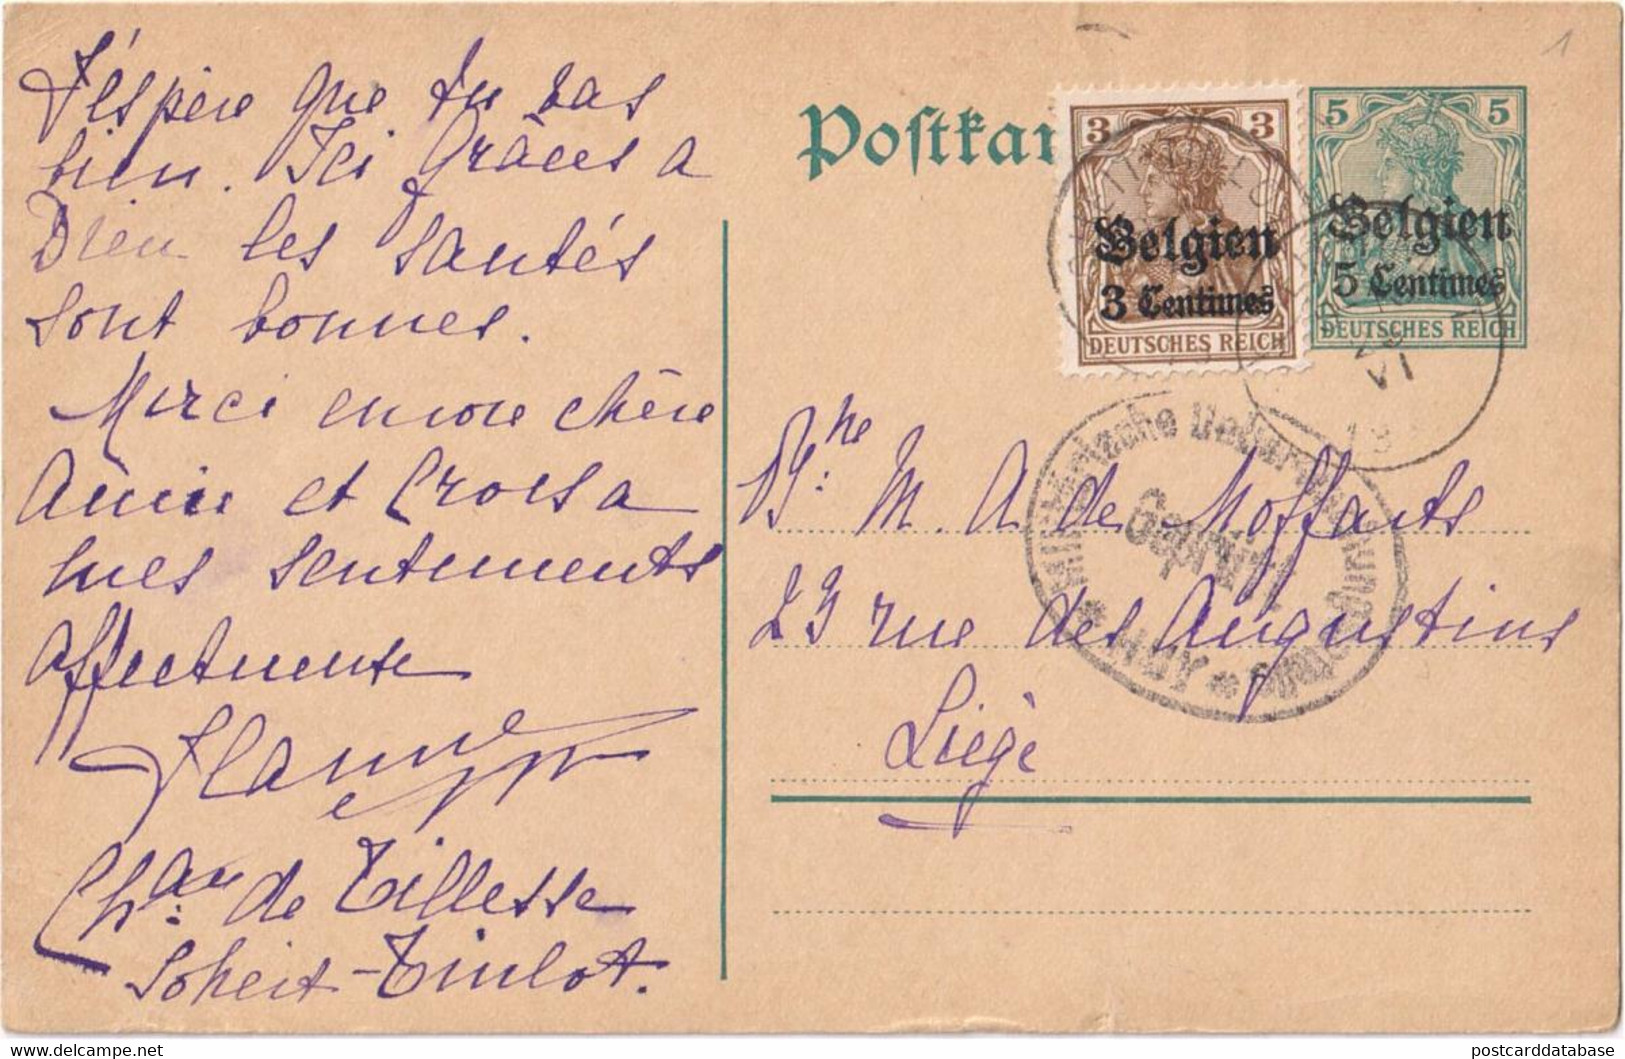 J'éspère que tu vas
bien. Ici Grâces a
Dieu les santés
sont bonnes.
Merci encore chère
Amie et Crois a
mes sentements
affectueuse
Chau: de Tillesse
Soheit-Tinlot.
1
Postkar
3 3
Belgien
3 Centimes
DEUTSCHES REICH
5 5
Belgien
5 Centimes
DEUTSCHES REICH
VI
Militärische Ueberwachungsstelle
Geprüft
* HUY *
M. A de Moffarts
23 rue des Augustins
Liège
delcampe.net
postcarddatabase